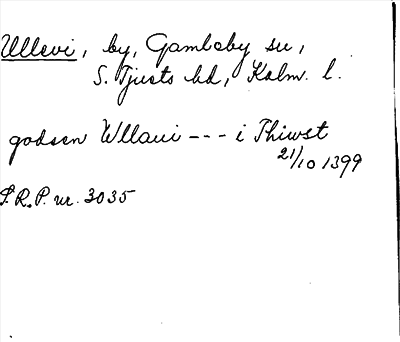 Ullevi, by, Gamleby sn,
S. Tjusts hd, Kalm. l.
godsen Wllaui --- i Thiwst
21/10 1399
S.R.P. nr. 3035